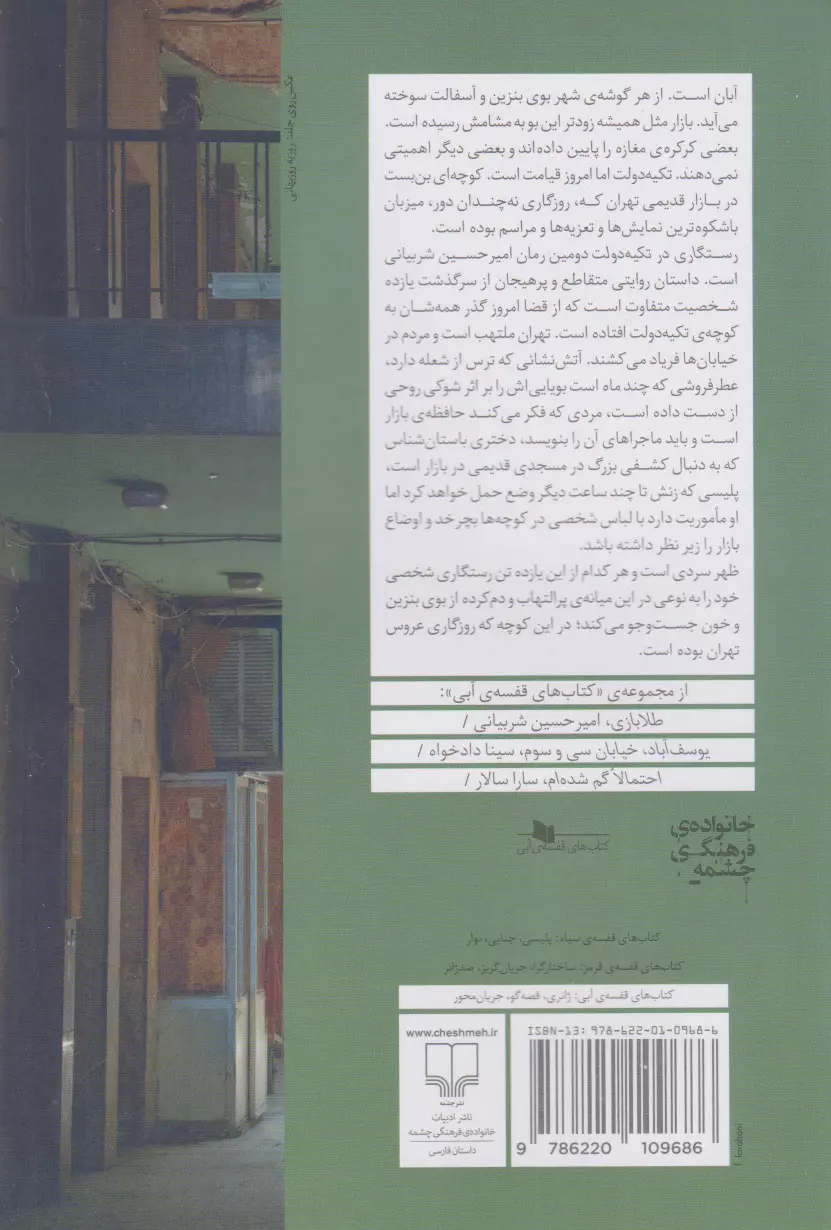 عکس روی جلد: روزبه روزبهانی
آبان است. از هر گوشه‌ی شهر بوی بنزین و آسفالت سوخته
می‌آید. بازار مثل همیشه زودتر این بو به مشامش رسیده است.
بعضی کرکره‌ی مغازه را پایین داده‌اند و بعضی دیگر اهمیتی
نمی‌دهند. تکیه‌دولت اما امروز قیامت است. کوچه‌ای بن‌بست
در بازار قدیمی تهران که، روزگاری نه‌چندان دور، میزبان
باشکوه‌ترین نمایش‌ها و تعزیه‌ها و مراسم بوده است.
رستگاری در تکیه‌دولت دومین رمان امیرحسین شربیانی
است. داستان روایتی متقاطع و پرهیجان از سرگذشت یازده
شخصیت متفاوت است که از قضا امروز گذر همه‌شان به
کوچه‌ی تکیه‌دولت افتاده است. تهران ملتهب است و مردم در
خیابان‌ها فریاد می‌کشند. آتش‌نشانی که ترس از شعله دارد،
عطرفروشی که چند ماه است بویایی‌اش را بر اثر شوکی روحی
از دست داده است، مردی که فکر می‌کند حافظه‌ی بازار
است و باید ماجراهای آن را بنویسد، دختری باستان‌شناس
که به دنبال کشفی بزرگ در مسجدی قدیمی در بازار است،
پلیسی که زنش تا چند ساعت دیگر وضع حمل خواهد کرد اما
او مأموریت دارد با لباس شخصی در کوچه‌ها بچرخد و اوضاع
بازار را زیر نظر داشته باشد.
ظهر سردی است و هر کدام از این یازده تن رستگاری شخصی
خود را به نوعی در این میانه‌ی پرالتهاب و دم‌کرده از بوی بنزین
و خون جست‌وجو می‌کند؛ در این کوچه که روزگاری عروس
تهران بوده است.
از مجموعه‌ی «کتاب‌های قفسه‌ی آبی»:
طلابازی، امیرحسین شربیانی /
یوسف‌آباد، خیابان سی و سوم، سینا دادخواه /
احتمالاً گم شده‌ام، سارا سالار /
خانواده‌ی
فرهنگی
چشمه
کتاب‌های قفسه‌ی آبی
کتاب‌های قفسه‌ی سیاه: پلیسی، جنایی، نوآر
کتاب‌های قفسه‌ی قرمز: ساختارگرا، جریان‌گریز، ضدژانر
کتاب‌های قفسه‌ی آبی: ژانری، قصه‌گو، جریان‌محور
ISBN-13: 978-622-01-0968-6
9 786220 109686
www.cheshmeh.ir
نشر چشمه
ناشر ادبیات
خانواده‌ی فرهنگی چشمه
داستان فارسی
f. farahani